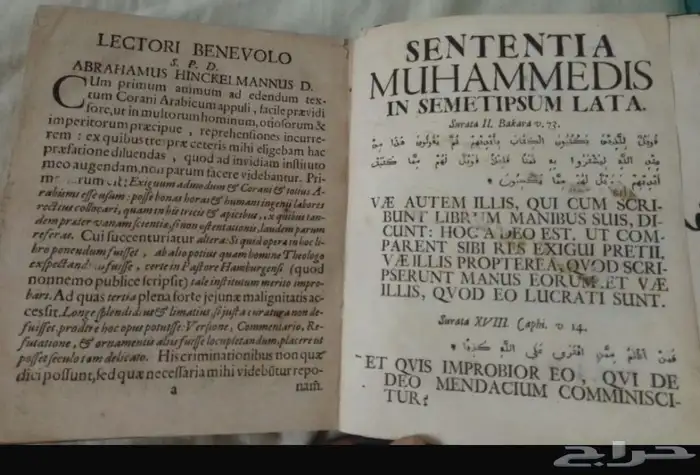 LECTORI BENEVOLO
S. P. D.
ABRAHAMUS HINCKELMANNUS D.
CUm primum animum ad edendum tex-
tum Corani Arabicum appuli, facile prævidi
fore, ut in multorum hominum, otiosorum &
imperitorum præcipue, reprehensiones incurre-
rem: ex quibus tres præ ceteris mihi eligebam hac
præfatione diluendas, quod ad invidiam instituto
meo augendam, non parum facere videbantur. Pri-
rum est: Exiguum admodum & Corani & totius A-
rabismi esse usum: posse bonas horas & humani ingenij labores
rectius collocari, quam in his tricis & apicibus, ex quibus tan-
dem præter vanam scientiæ, si non ostentationis, laudem parum
referas. Cui succenturiatur altera: Si qua opera in hoc li-
bro ponenda fuisset, ab alio potius quam homine Theologo
exspectanda fuisse, certe in Pastore Hamburgensi (quod
nonnemo publice scripsit) tale institutum merito impro-
bars. Ad quas tertia plena forte jejunæ malignitatis ac-
cessit. Longe splendidiut & limatius, si justa curatura non de-
fuisset, prodire hoc opus potuisse: Versione, Commentario, Re-
futatione, & ornamentis aliis fuisse locupletandum, placere ut
posset seculo tam delicato. His criminationibus non quæ
dici possunt, sed quæ necessaria mihi videbũtur repo-
a nam.
SENTENTIA
MUHAMMEDIS
IN SEMETIPSUM LATA.
Surata II. Bakara v. 73.
فويل للذين يكتبون الكتاب بايديهم ثم يقولون هذا من
عند الله ليشتروا به ثمنا قليلا فويل لهم مما كتبت
ايديهم وويل لهم مما يكسبون
VÆ AUTEM ILLIS, QUI CUM SCRI-
BUNT LIBRUM MANIBUS SUIS, DI-
CUNT: HOC A DEO EST, UT COM-
PARENT SIBI RES EXIGUI PRETII.
VÆ ILLIS PROPTEREA, QVOD SCRI-
PSERUNT MANUS EORUM, ET VÆ
ILLIS, QVOD EO LUCRATI SUNT.
Surata XVIII. Caphi. v. 14.
فمن اظلم ممن افترى على الله كذبا
ET QVIS IMPROBIOR EO, QVI DE
DEO MENDACIUM COMMINISCI-
TUR?
حراج